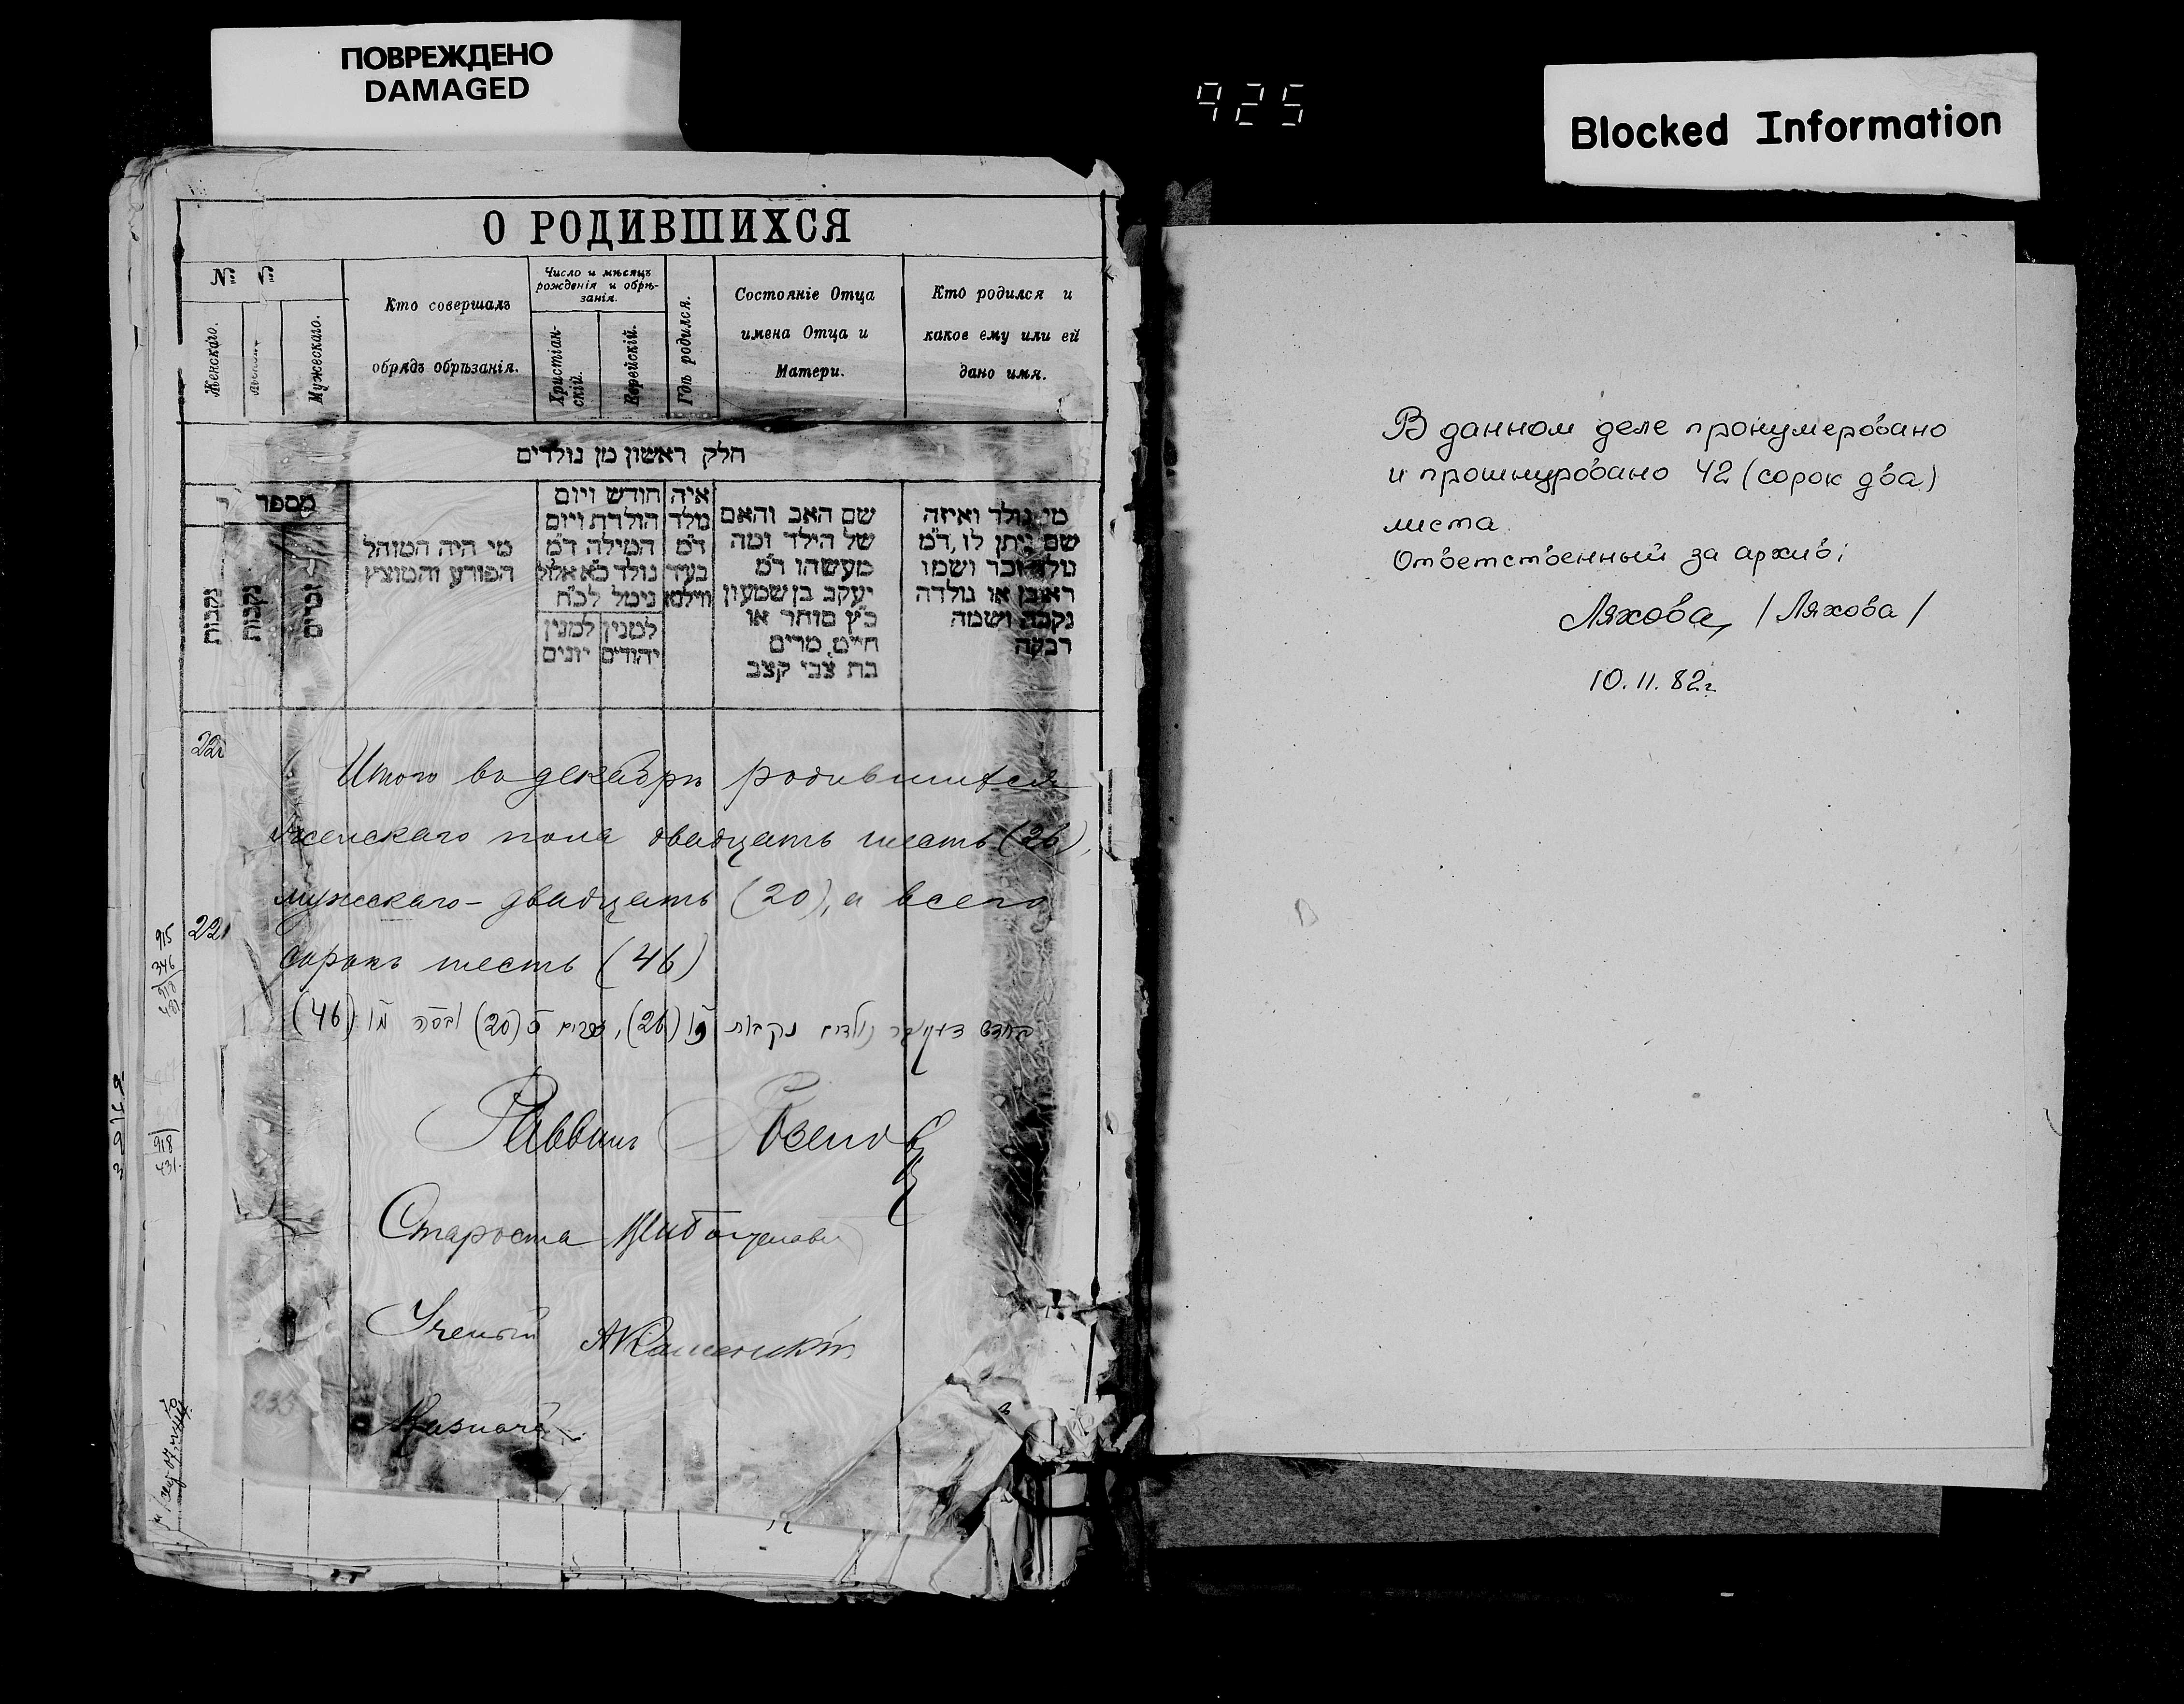 ПОВРЕЖДЕНО
DAMAGED
925
Blocked Information
О РОДИВШИХСЯ
№ №
Женскаго.
Мужескаго.
Кто совершалъ
обрядъ обрѣзанія.
Число и мѣсяцъ
рожденія и обрѣ-
занія.
Христіан-
скій.
Еврейскій.
Гдѣ родился.
Состояніе Отца
имена Отца и
Матери.
Кто родился и
какое ему или ей
дано имя.
חלק ראשון מן נולדים
מספר
נקבות
נקבות
זכרים
מי היה המוהל
הפורע והמוצץ
חודש ויום
הולדת ויום
המילה ד״מ
נולד כ״א אלול
נימל לכ״ח
למנין למנין
יהודים יונים
איה
מלד
ד״מ
בעיר
ווילנא
שם האב והאם
של הילד ומה
מעשהו ד״מ
יעקב בן שמעון
כ״ץ סוחר או
חייט, מרים
בת צבי קצב
מי נולד ואיזה
שם ניתן לו, ד״מ
נולד זכר ושמו
ראובן או נולדה
נקבה ושמה
רבקה
Итого въ декабрѣ родившихся
женскаго пола двадцать шесть (26),
мужескаго - двадцать (20), а всего
сорокъ шесть (46)
נולדים נקבות (26), זכרים כ (20) (46)
221
915
346
918
431
918
431.
Раввинъ
Староста
Ученый АКаменскій
Казначей
В данном деле пронумеровано
и прошнуровано 42 (сорок два)
листа.
Ответственный за архив:
Ляхова /Ляхова/
10.11.82г.